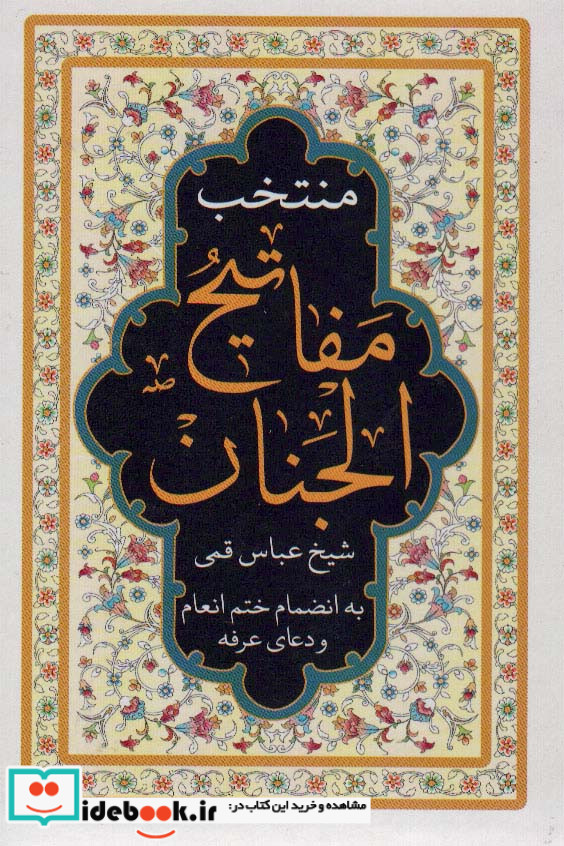 منتخب
مَفاتیحُ
الجَنان
شیخ عباس قمی
به انضمام ختم انعام
و دعای عرفه
idebook.ir
مشاهده و خرید این کتاب در: